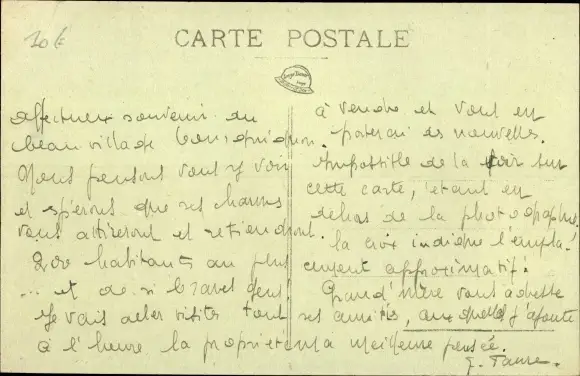 10 €
CARTE POSTALE
Affectueux souvenir du
beau village
Nous pensons vous y voir
et espérons que ses charmes
vous attireront et retiendront.
200 habitants au plus
... et de si braves gens!
Je vais aller visiter tout
à l'heure la propriété
à vendre et vous en
porterai des nouvelles.
Impossible de la voir sur
cette carte, étant en
dehors de la photographie.
la croix indique l'empla-
cement approximatif.
Grand'mère vous adresse
ses amitiés, auxquelles j'ajoute
ma meilleure pensée.